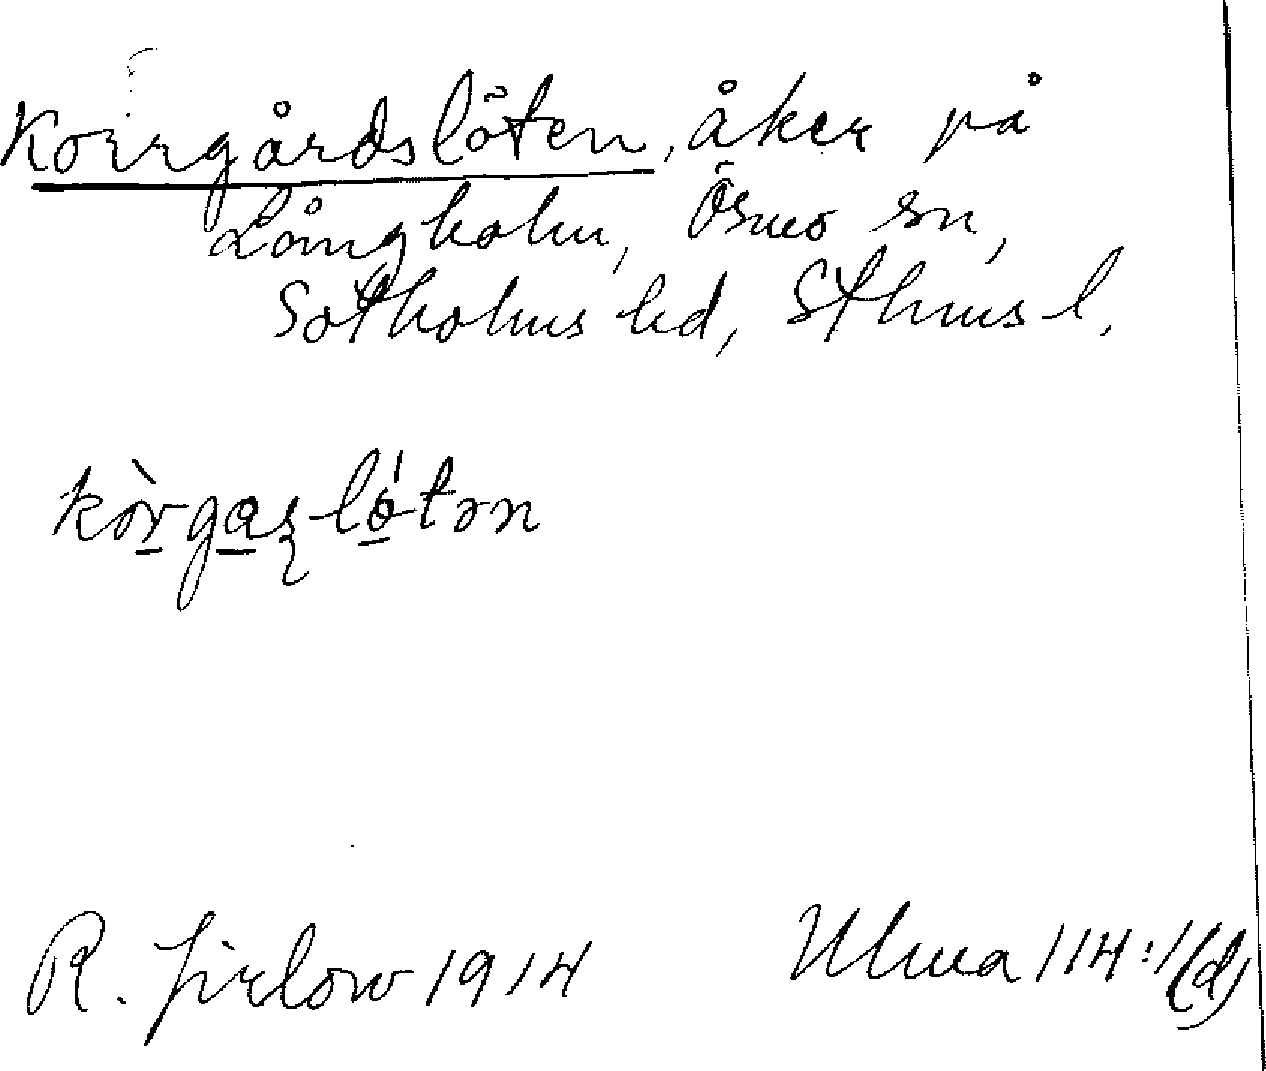 Korrgårdslöten, åker på
Långholm, Ösmo sn,
Sotholms hd, Sthms l.
kòrgaʂlö́tən
R. Jirlow 1914
Ulma 114:1(d)